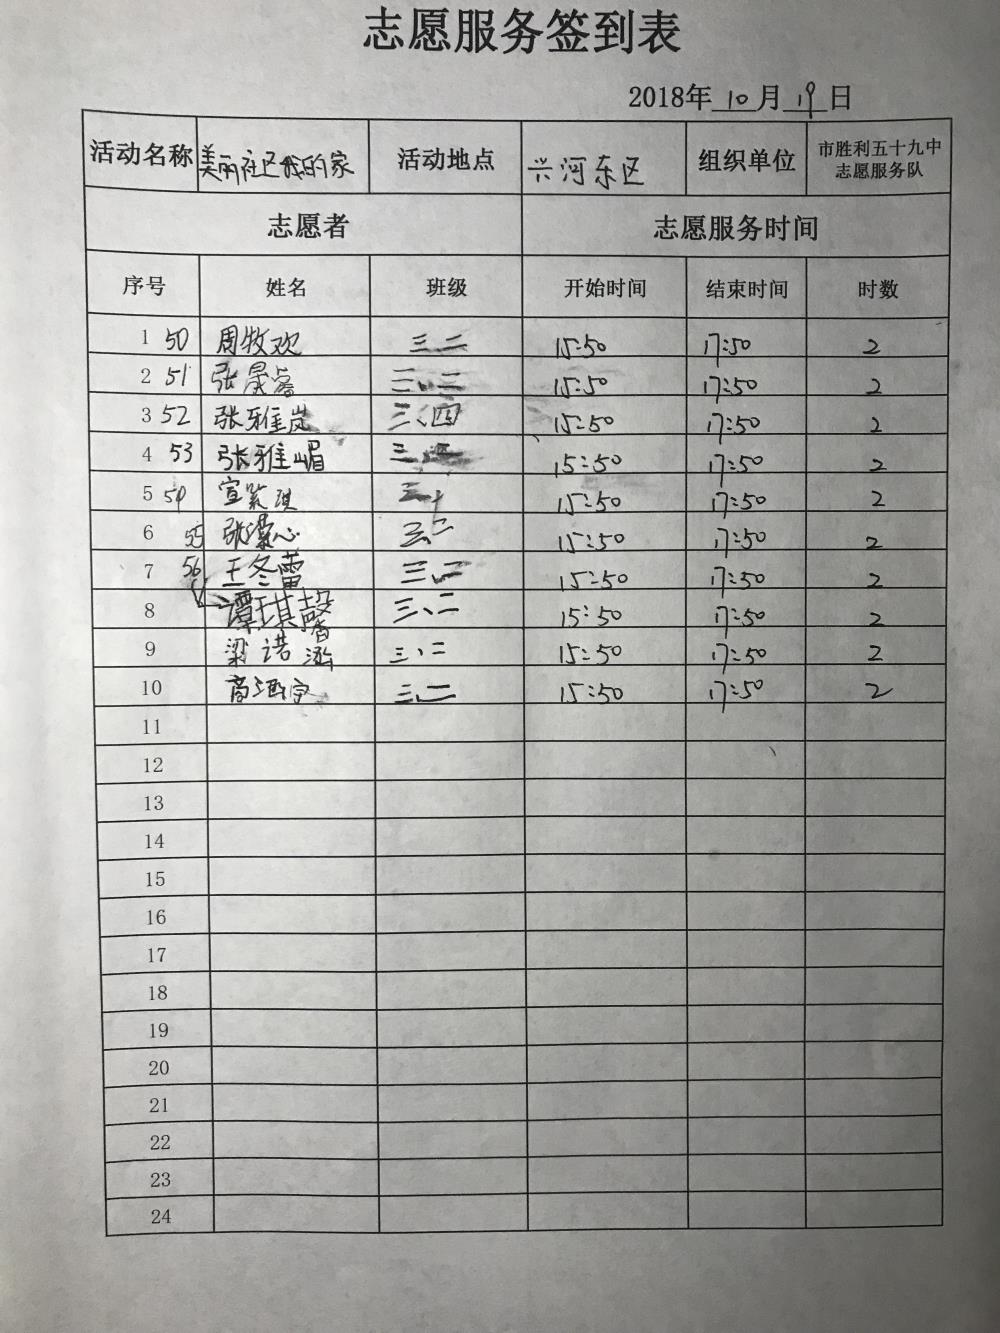 志愿服务签到表
2018年 10 月 19 日
活动名称 美丽社区我的家 活动地点 兴河东区 组织单位 市胜利五十九中志愿服务队
志愿者 志愿服务时间
序号 姓名 班级 开始时间 结束时间 时数
1 50 周牧欢 三二 15:50 17:50 2
2 51 张晟睿 三、三 15:50 17:50 2
3 52 张雅岚 三、四 15:50 17:50 2
4 53 张雅嵋 三、 15:50 17:50 2
5 54 宣 琪 三 15:50 17:50 2
6 55 张 心 三、二 15:50 17:50 2
7 56 王冬蕾 三、二 15:50 17:50 2
8 谭琪馨 三、二 15:50 17:50 2
9 梁诺泓 三、二 15:50 17:50 2
10 高 宇 三、二 15:50 17:50 2
11
12
13
14
15
16
17
18
19
20
21
22
23
24